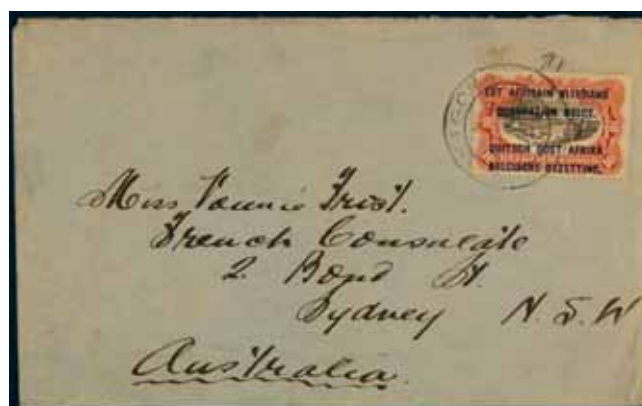 EST AFRICAIN ALLEMAND
OCCUPATION BELGE.
DUITSCH OOST AFRIKA
BELGISCHE BEZETTING.
Miss Fannie Trist.
French Consulate
2. Bond St.
Sydney N.S.W
Australia.